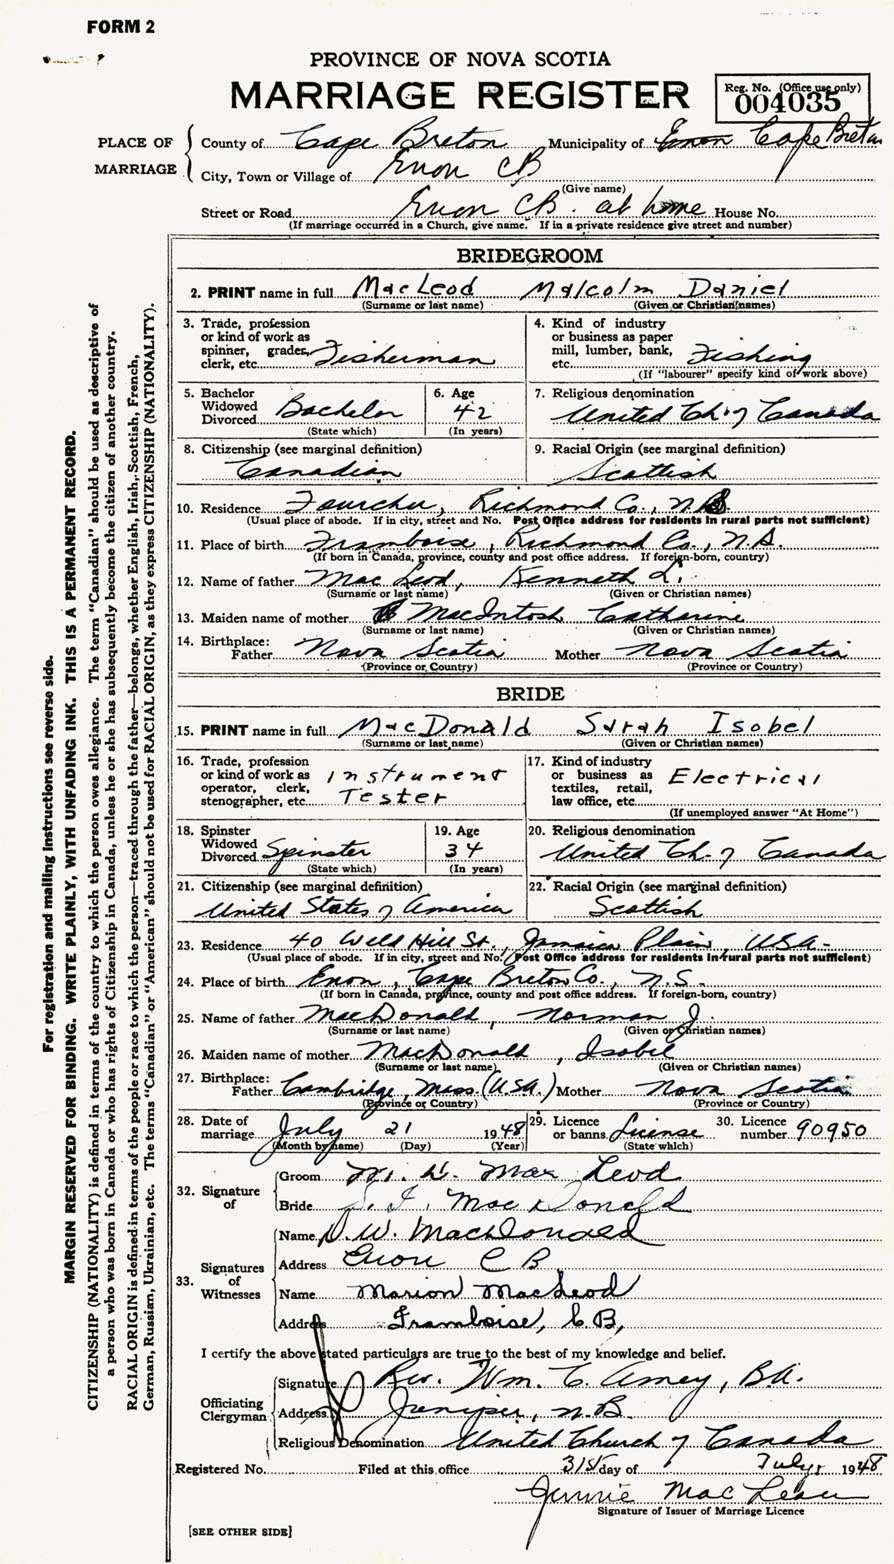 FORM 2
PROVINCE OF NOVA SCOTIA
MARRIAGE REGISTER
Reg. No. (Office use only)
004035
PLACE OF MARRIAGE
County of Cape Breton Municipality of Enon Cape Breton
City, Town or Village of Enon CB
(Give name)
Street or Road Enon CB. at home House No.
(If marriage occurred in a Church, give name. If in a private residence give street and number)
BRIDEGROOM
2. PRINT name in full MacLeod Malcolm Daniel
(Surname or last name) (Given or Christian names)
3. Trade, profession or kind of work as spinner, grader, clerk, etc. Fisherman
4. Kind of industry or business as paper mill, lumber, bank, etc. Fishing
(If "labourer" specify kind of work above)
5. Bachelor Widowed Divorced Bachelor
(State which)
6. Age 42
(In years)
7. Religious denomination
United Ch. of Canada
8. Citizenship (see marginal definition)
Canadian
9. Racial Origin (see marginal definition)
Scottish
10. Residence Fourchu, Richmond Co., N.S.
(Usual place of abode. If in city, street and No. Post Office address for residents in rural parts not sufficient)
11. Place of birth Framboise, Richmond Co., N.S.
(If born in Canada, province, county and post office address. If foreign-born, country)
12. Name of father MacLeod, Kenneth L.
(Surname or last name) (Given or Christian names)
13. Maiden name of mother MacIntosh Catharine
(Surname or last name) (Given or Christian names)
14. Birthplace:
Father Nova Scotia Mother Nova Scotia
(Province or Country) (Province or Country)
BRIDE
15. PRINT name in full MacDonald Sarah Isobel
(Surname or last name) (Given or Christian names)
16. Trade, profession or kind of work as operator, clerk, stenographer, etc. Instrument Tester
17. Kind of industry or business as textiles, retail, law office, etc. Electrical
(If unemployed answer "At Home")
18. Spinster Widowed Divorced Spinster
(State which)
19. Age 34
(In years)
20. Religious denomination
United Ch. of Canada
21. Citizenship (see marginal definition)
United States of America
22. Racial Origin (see marginal definition)
Scottish
23. Residence 40 Weld Hill St., Jamaica Plain, USA.
(Usual place of abode. If in city, street and No. Post Office address for residents in rural parts not sufficient)
24. Place of birth Enon, Cape Breton Co., N.S.
(If born in Canada, province, county and post office address. If foreign-born, country)
25. Name of father MacDonald, Norman J.
(Surname or last name) (Given or Christian names)
26. Maiden name of mother MacDonald, Isobel
(Surname or last name) (Given or Christian names)
27. Birthplace:
Father Cambridge, Mass. (U.S.A.) Mother Nova Scotia
(Province or Country) (Province or Country)
28. Date of marriage July 21 1948
(Month by name) (Day) (Year)
29. Licence or banns License
(State which)
30. Licence number 90950
32. Signature of
Groom M. D. MacLeod
Bride S. I. MacDonald
33. Signatures of Witnesses
Name D. W. MacDonald
Address Enon C B
Name Marion MacLeod
Address Framboise, C B,
I certify the above stated particulars are true to the best of my knowledge and belief.
Officiating Clergyman
Signature Rev. Wm. C. Amey, B.A.
Address Juniper, N.B.
Religious Denomination United Church of Canada
Registered No. Filed at this office 31st day of July, 1948
Jennie MacLean
Signature of Issuer of Marriage Licence
[SEE OTHER SIDE]
For registration and mailing instructions see reverse side.
MARGIN RESERVED FOR BINDING. WRITE PLAINLY, WITH UNFADING INK. THIS IS A PERMANENT RECORD.
CITIZENSHIP (NATIONALITY) is defined in terms of the country to which the person owes allegiance. The term "Canadian" should be used as descriptive of
a person who was born in Canada or who has rights of Citizenship in Canada, unless he or she has subsequently become the citizen of another country.
RACIAL ORIGIN is defined in terms of the people or race to which the person—traced through the father—belongs, whether English, Irish, Scottish, French,
German, Russian, Ukrainian, etc. The terms "Canadian" or "American" should not be used for RACIAL ORIGIN, as they express CITIZENSHIP (NATIONALITY).